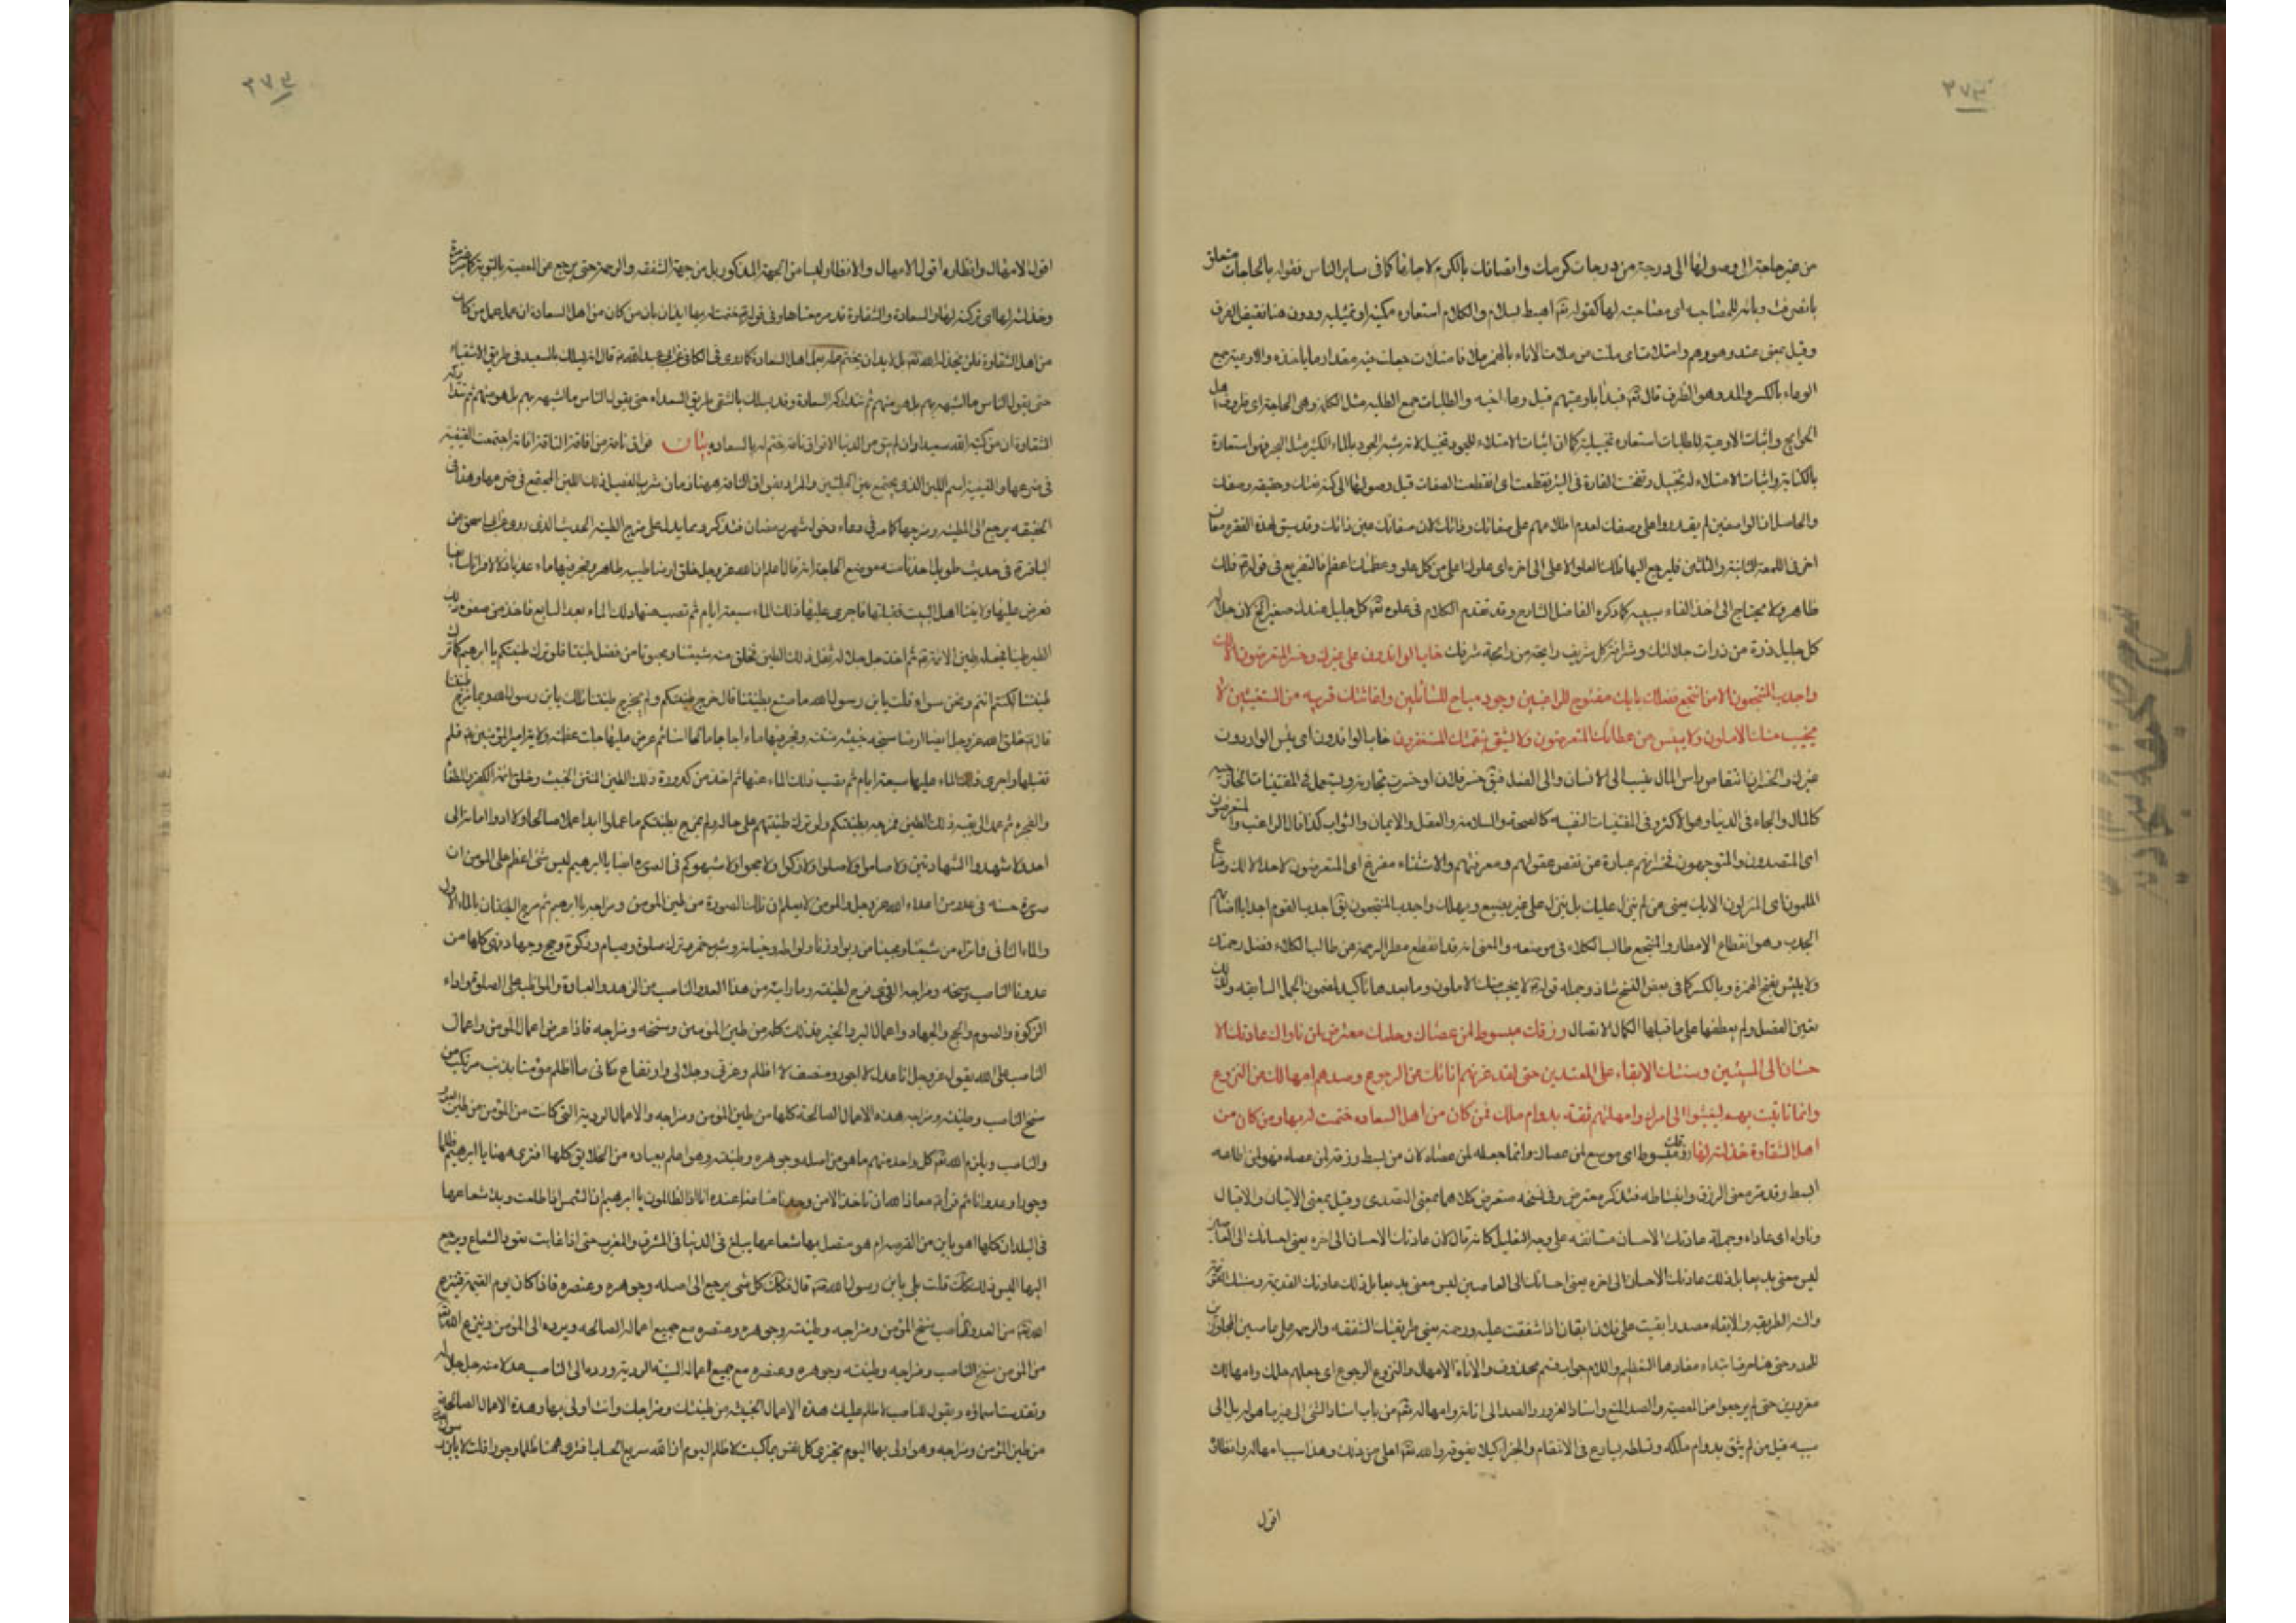 ٢٧٣
من غير حاجة الى وصولها الى درجة من درجات كرمك واتصافك بالكرم لا جارها كما فى ساير الناس فقوله بالحاجات متعلق
بانصرفت وبائه للمصاحبه اى مصاحبة لها كقوله تعالى اهبط بسلام والكلام استعاره مكنية او تمثيلية ودون هنا نقيض الفوق
وقيل بمعنى عند وهو وهم وامتلات اى ملئت من ملات الاناء بالهمز ملأ فامتلأت جعلت فيه مقدار ما ياخذه والاوعية جمع
الوعاء بالكسر والمد وهو الظرف قال تعالى فبدأ باوعيتهم قبل وعاء اخيه والطلبات جمع الطلبه مثل الكلمة وهى الحاجة اى ظروف اهل
الحوايج واثبات الاوعية للطلبات استعاره تخييلية كما ان اثبات الامتلاء للجود تخييل لانه شبه الجود بالماء الكثير مثل البحر فهو استعارة
بالكناية واثبات الامتلاء له تخييل وتفسخت الفارة فى البئر تقطعت اى انقطعت الصفات قبل وصولها الى كنه نعتك وحقيقه وصفك
والحاصل ان الواصفين لم يقدروا على وصفك لعدم اطلاعهم على صفاتك وذاتك لان صفاتك عين ذاتك وقد سبق لهذه الفقره معان
اخر فى اللمعة الثانية والثلثين فليرجع اليها فلك العلو الاعلى الى اخره اى علوك اعلى من كل علو وعظمتك اعظم فالتفريع فى قوله فلك
ظاهر ولا يحتاج الى اخذ الفاء سببيه كما ذكره الفاضل الشارح وقد تقدم الكلام فى علوه تعالى كل جليل عندك صغير الخ لان جلال
كل جليل ذرة من ذرات جلالتك وشرافة كل شريف رايحة من رايحة شرفك خاب الوافدون على غيرك وخسر المتعرضون الا لك
واجدب المنتجعون الا من انتجع فضلك بابك مفتوح للراغبين وجودك مباح للسائلين واغاثتك قريبه من المستغيثين لا
يخيب منك الاملون ولا ييئس من عطائك المتعرضون ولا يشقى بنقمتك المستغفرون خاب الوافدون اى يئس الواردون
غيرك والخسران انتقاص راس المال ينسب الى الانسان والى الفعل فيقال خسر فلان او خسرت تجارته ويستعمل فى المقتنيات الخارجية
كالمال والجاه فى الدنيا وهو الاكثر وفى المقتنيات النفسيه كالصحة والسلامة والعقل والايمان والثواب كذا قال الراغب والمتعرضون
اى المتصدون والمتوجهون فخسرانهم عبارة عن نقص عقولهم ومعرفتهم والاستثناء مفرغ اى المتعرضون لاحد الا لك وضاع
الملمون اى المنزلون الا بك يعنى من لم ينزل عليك بل ينزل على غيرك يضيع ويهلك واجدب المنتجعون يقال اجدب القوم اجدابا اصابهم
الجدب وهو انقطاع الامطار والمنتجع طالب الكلاء فى موضعه والمعنى انه قد انقطع مطر الرحمة عن طالب الكلاء فضل رحمتك
ولا ييئس بفتح الهمزة وبالكسر كما فى بعض النسخ شاذ وجمله قوله لا يخيب منك الاملون وما بعدها تاكيد لمضمون الجمل السابقه ولذلك
تعين الفصل ولم يعطفها على ما قبلها لكمال الاتصال ورزقك مبسوط لمن عصاك وحلمك معترض لمن ناواك عادتك الا
حسان الى المسيئين وسنتك الابقاء على المعتدين حتى لقد غرتهم اناتك عن الرجوع وصدهم امهالك عن النزوع
وانما تانيت بهم ليفيئوا الى امرك وامهلتهم ثقه بدوام ملكك فمن كان من اهل السعاده ختمت له بها ومن كان من
اهل الشقاوة خذلته لها رزقك مبسوط اى موسع لمن عصاك وانما جعله لمن عصاه لان من بسط رزقه لمن عصاه فهو لمن اطاعه
ابسط وقد مر معنى الرزق وانبساطه فتذكر معترض وفى نسخه متعرض كلاهما بمعنى التصدى وقيل بمعنى الاتيان والاقبال
وناواه اى عاداه وجملة عادتك الاحسان مستانفه على وجه التعليل كانه قال لان عادتك الاحسان الى اخره يعنى احسانك الى العاصين
ليس معنى بديعا بل ذلك عادتك الاحسان الى اخره يعنى احسانك الى العاصين ليس معنى بديعا بل ذلك عادتك القديمة وسنتك
والسنة الطريقه والابقاء مصدر ابقيت على فلان ابقاء اذا اشفقت عليه ورحمته يعنى طريقتك الشفقه والرحمه على عاصين
للحد وحتى هنا حرف ابتداء مفادها التعظيم واللام جواب قسم محذوف والاناة الامهال والنزوع الرجوع اى جعلهم حلمك وامهالك
مغرورين حتى لم يرجعوا من المعصية والصد المنع واسناد الغرور والصد الى اناته وامهاله تعالى من باب اسناد الشى الى غير ما هو له بل الى
سببه قيل من لم يثق بدوام ملكه وتسلطه يسارع فى الانتقام والجزاء كيلا يفوته والله تعالى اعلى من ذلك وهذا سبب امهاله وانظاره
اقول
٢٧٣
اقول الامهال وانظاره اقول الامهال والانظار ليسا من الجهة المذكور بل من جهة الشفقه والرحمة حتى يرجع عن المعصية بالتوبة
وخذلته لها اى تركته لها والسعادة والشقاوة قد مر معناها وفى قوله ختمت له بها ايذان بان من كان من اهل السعادة ان عمل عمل من كان
من اهل الشقاوة فلن يخذله الله تعالى بل لا بد ان يختم له بعمل اهل السعادة كما روى فى الكافى عن ابى عبد الله قال انه يسلك بالسعيد فى طريق الاشقياء
حتى يقول الناس ما اشبهه بهم بل هو منهم ثم تتداركه السعادة وقد يسلك بالشقى طريق السعداء حتى يقول الناس ما اشبهه بهم بل هو منهم ثم تتداركه
الشقاوة ان من كتبه الله سعيدا وان لم يبق من الدنيا الا فواق ناقة ختم له بالسعاده بيان فواق ناقة من افاقت الناقة افاقة اجتمعت الفيقة
فى ضرعها والفيقه اسم اللبن الذى يجتمع بين الحلبتين والمراد بفواق الناقة ههنا زمان شرب الفصيل ذلك اللبن المجتمع فى ضرعها وهذا فى
الحقيقه يرجع الى الطينه ومزجها كما مر فى دعاء دخول شهر رمضان فتذكر ومما يدل على مزج الطينة الحديث الذى روى عن ابى اسحق عن
الباقر فى حديث طويل اخذنا منه موضع الحاجة انه قال اعلم ان الله عز وجل خلق ارضا طيبه طاهره وفجر فيها ماء عذبا زلالا فراتا سايغا
فعرض عليها ولايتنا اهل البيت فقبلتها فاجرى عليها ذلك الماء سبعة ايام ثم نضب عنها ذلك الماء بعد السابع فاخذ من صفوة ذلك
الطين طينا فجعله طين الائمة ثم اخذ جل جلاله ثفل ذلك الطين فخلق منه شيعتنا ومحبونا من فضل طينتنا فلو ترك طينتكم يا ابرهيم كما ترك
طينتنا لكنتم انتم ونحن سواء قلت يابن رسول الله ما صنع بطينتنا قال مزج طينتكم ولم يمزج طينتنا قلت يابن رسول الله وبما مزج طينتنا
قال خلق الله عز وجل ايضا ارضا سبخه خبيثه منتنه وفجر فيها ماء اجاجا مالحا اسنا ثم عرض عليها جلت عظمته ولاية امير المؤمنين فلم
تقبلها واجرى ذلك الماء عليها سبعة ايام ثم نضب ذلك الماء عنها ثم اخذ من كدورة ذلك الطين المنتن الخبيث وخلق ائمة الكفر والطغاة
والفجره ثم عمد الى بقية ذلك الطين فمزجه بطينتكم ولو ترك طينتهم على حاله ولم يمزج بطينتكم ما عملوا ابدا عملا صالحا ولا ادوا امانة الى
احد ولا شهدوا الشهادتين ولا صاموا ولا صلوا ولا زكوا ولا حجوا ولا اشبهوكم فى الصوره ايضا يا ابرهيم ليس شئ اعظم على المؤمن ان
صورة حسنه فى عدو من اعداء الله عز وجل والمومن لا يعلم ان تلك الصورة من طين المومن ومزاجه يا ابرهيم ثم مزج الطينتان بالماء الاول
والماء الثانى فما تراه من شيعتنا ومحبينا من ربوا وزنا ولواطه وخيانة وشرب خمر وترك صلوة وصيام وزكوة وحج وجهاد فهى كلها من
عدونا الناصب وسنخه ومزاجه الذى مزج بطينته وما رايته من هذا العدو الناصب من الزهد والعبادة والمواظبة على الصلوة واداء
الزكوة والصوم والحج والجهاد واعمال البر والخير فذلك كله من طين المؤمنين وسنخه ومزاجه فاذا عرض اعمال المؤمن واعمال
الناصب على الله يقول عز وجل انا عدل لا اجور ومنصف لا اظلم وعزتى وجلالى وارتفاع مكانى ما اظلم مؤمنا بذنب مرتكب من
سنخ الناصب وطينته ومزاجه هذه الاعمال الصالحة كلها من طين المؤمن ومزاجه والاعمال الردية التى كانت من المؤمن من طين العدو
والناصب ويلزم الله تعالى كل واحد منهم ما هو من اصله وجوهره وطينته وهو اعلم بعباده من الخلايق كلها افترى ههنا يا ابرهيم ظلما
وجورا وعدوانا ثم قرأ معاذ الله ان ناخذ الا من وجدنا متاعنا عنده انا اذا لظالمون يا ابرهيم ان الشمس اذا طلعت وبدا شعاعها
فى البلدان كلها اهو باين من القرصه ام هو متصل بها شعاعها يبلغ فى الدنيا فى المشرق والمغرب حتى اذا غابت يعود الشعاع ويرجع
اليها اليس ذلك كذلك قلت بلى يابن رسول الله قال فكذلك كل شى يرجع الى اصله وجوهره وعنصره فاذا كان يوم القيمة فينزع
الله تعالى من العدو الناصب سنخ المؤمن ومزاجه وطينته وجوهره وعنصره مع جميع اعماله الصالحه ويرده الى المؤمن وينزع الله تعالى
من المؤمن سنخ الناصب ومزاجه وطينته وجوهره وعنصره مع جميع اعماله السيئه الرديه ويرده الى الناصب عدلا منه جل جلاله
وتقدست اسماؤه ويقول للناصب لا ظلم عليك هذه الاعمال الخبيثه من طينتك ومزاجك وانت اولى بها وهذه الاعمال الصالحة
من طين المؤمن ومزاجه وهو اولى بها اليوم تجزى كل نفس بما كسبت لا ظلم اليوم ان الله سريع الحساب افترى ههنا ظلما وجورا قلت لا يابن رسول الله